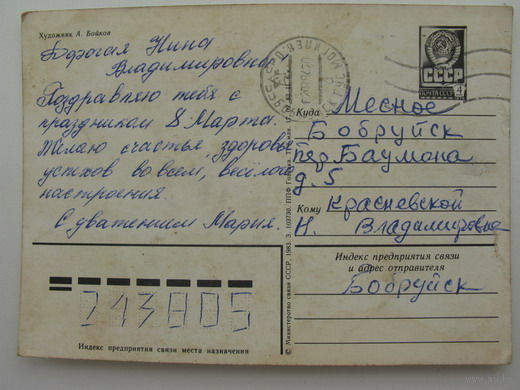 Художник А. Бойков
Дорогая Нина
Владимировна
Поздравляю тебя с
праздником 8 Марта.
Желаю счастья, здоровье
успхов во всем, веселого
настроения.
С уважением Мария.
СССР
ПОЧТА СССР
4
Куда Местное
Бобруйск
пер. Баумана
д. 5
Кому Красневской
Н. Владимировне
Индекс предприятия связи
и адрес отправителя
Бобруйск
213805
Индекс предприятия связи места назначения
© Министерство связи СССР, 1983. З. 103730. ППФ Гознака.